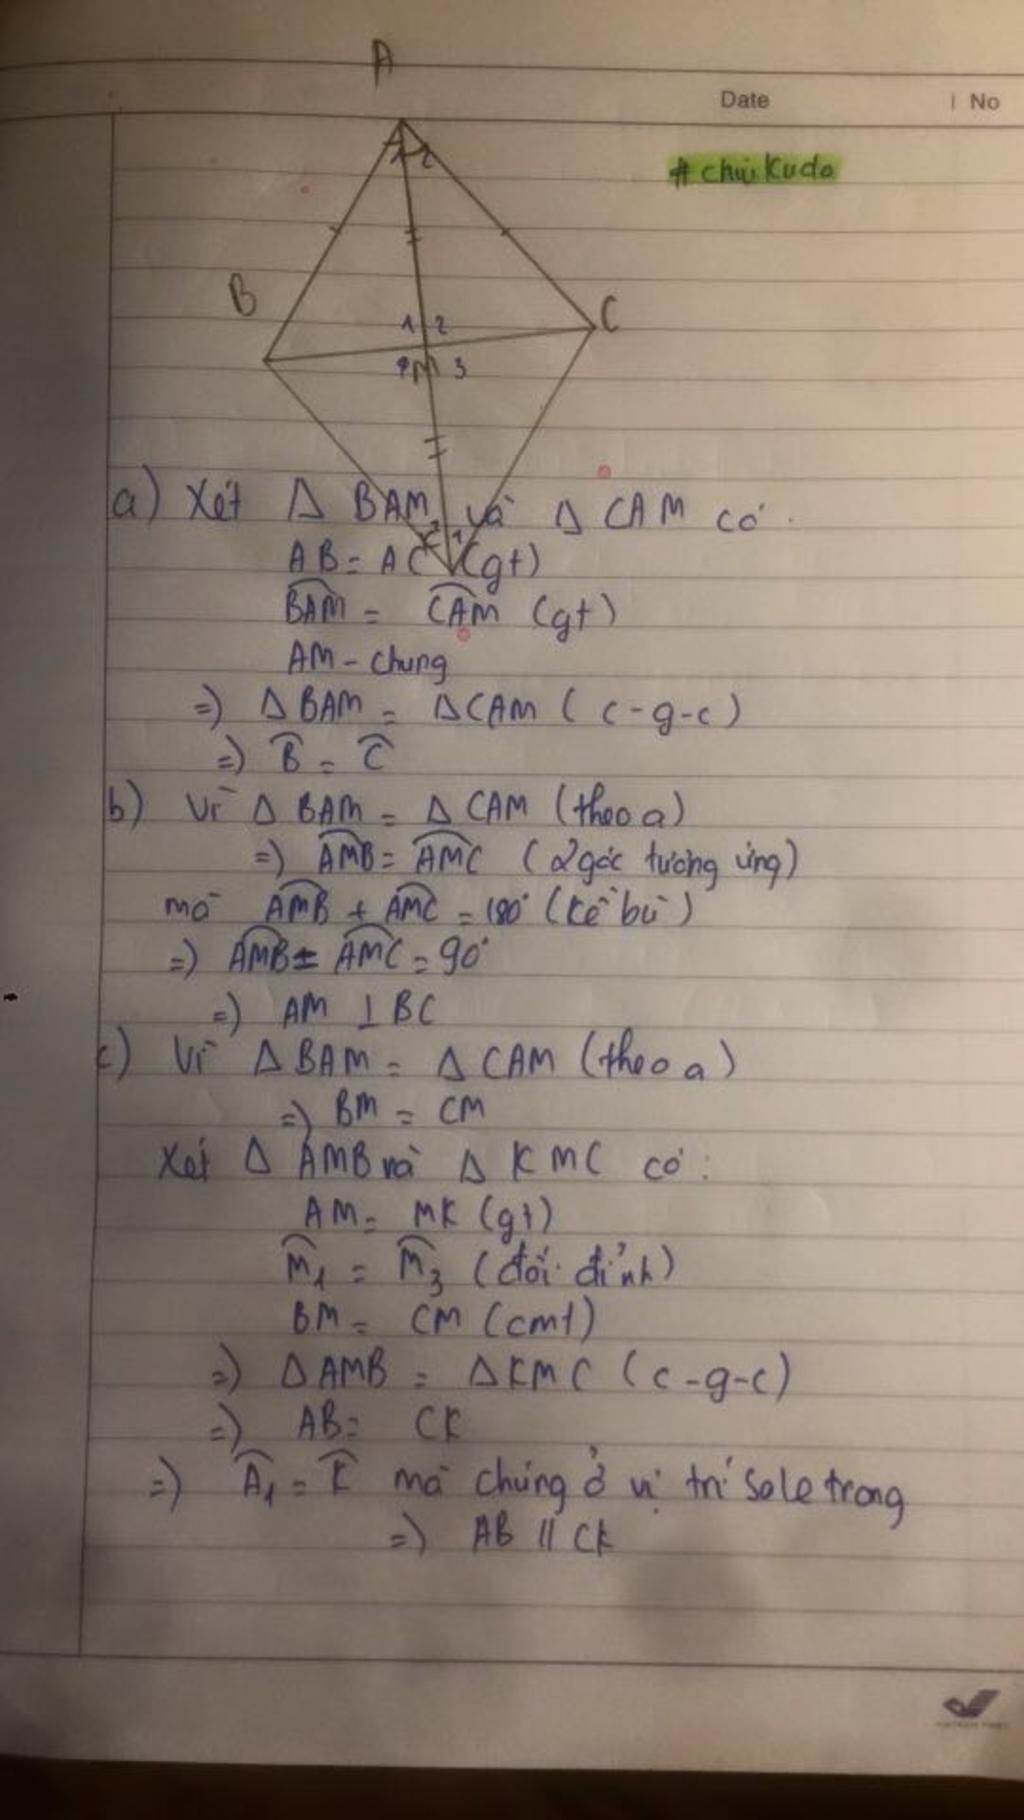 A
Date
No
# chii Kudo
1 2
B
C
1 2
4 M 3
a) Xét Δ BAM và Δ CAM có:
K 2 1
AB = AC (gt)
B̂AM = ĈAM (gt)
AM - chung
=) Δ BAM = Δ CAM ( c-g-c)
=) B̂ = Ĉ
b) Vì Δ BAM = Δ CAM (theo a)
=) ÂMB = ÂMC ( 2 góc tương ứng)
mà ÂMB + ÂMC = 180° (kề bù)
=) ÂMB = ÂMC = 90°
=) AM ⊥ BC
c) Vì Δ BAM = Δ CAM (theo a)
=) BM = CM
Xét Δ AMB và Δ KMC có:
AM = MK (gt)
M̂1 = M̂3 (đối đỉnh)
BM = CM (cmt)
=) Δ AMB = Δ KMC ( c-g-c)
=) AB = CK
=) Â1 = K̂ mà chúng ở vị trí sole trong
=) AB // CK